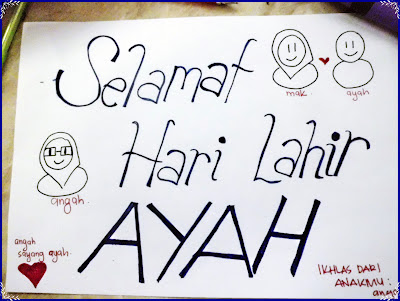 Selamat
mak. ayah
Hari Lahir
angah.
AYAH
angah
sayang ayah.
IKHLAS DARI
ANAKMU: